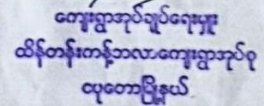 ကျေးရွာအုပ်ချုပ်ရေးမှူး
ထိန်တန်းကန့်ဘလာကျေးရွာအုပ်စု
ငပုတောမြို့နယ်